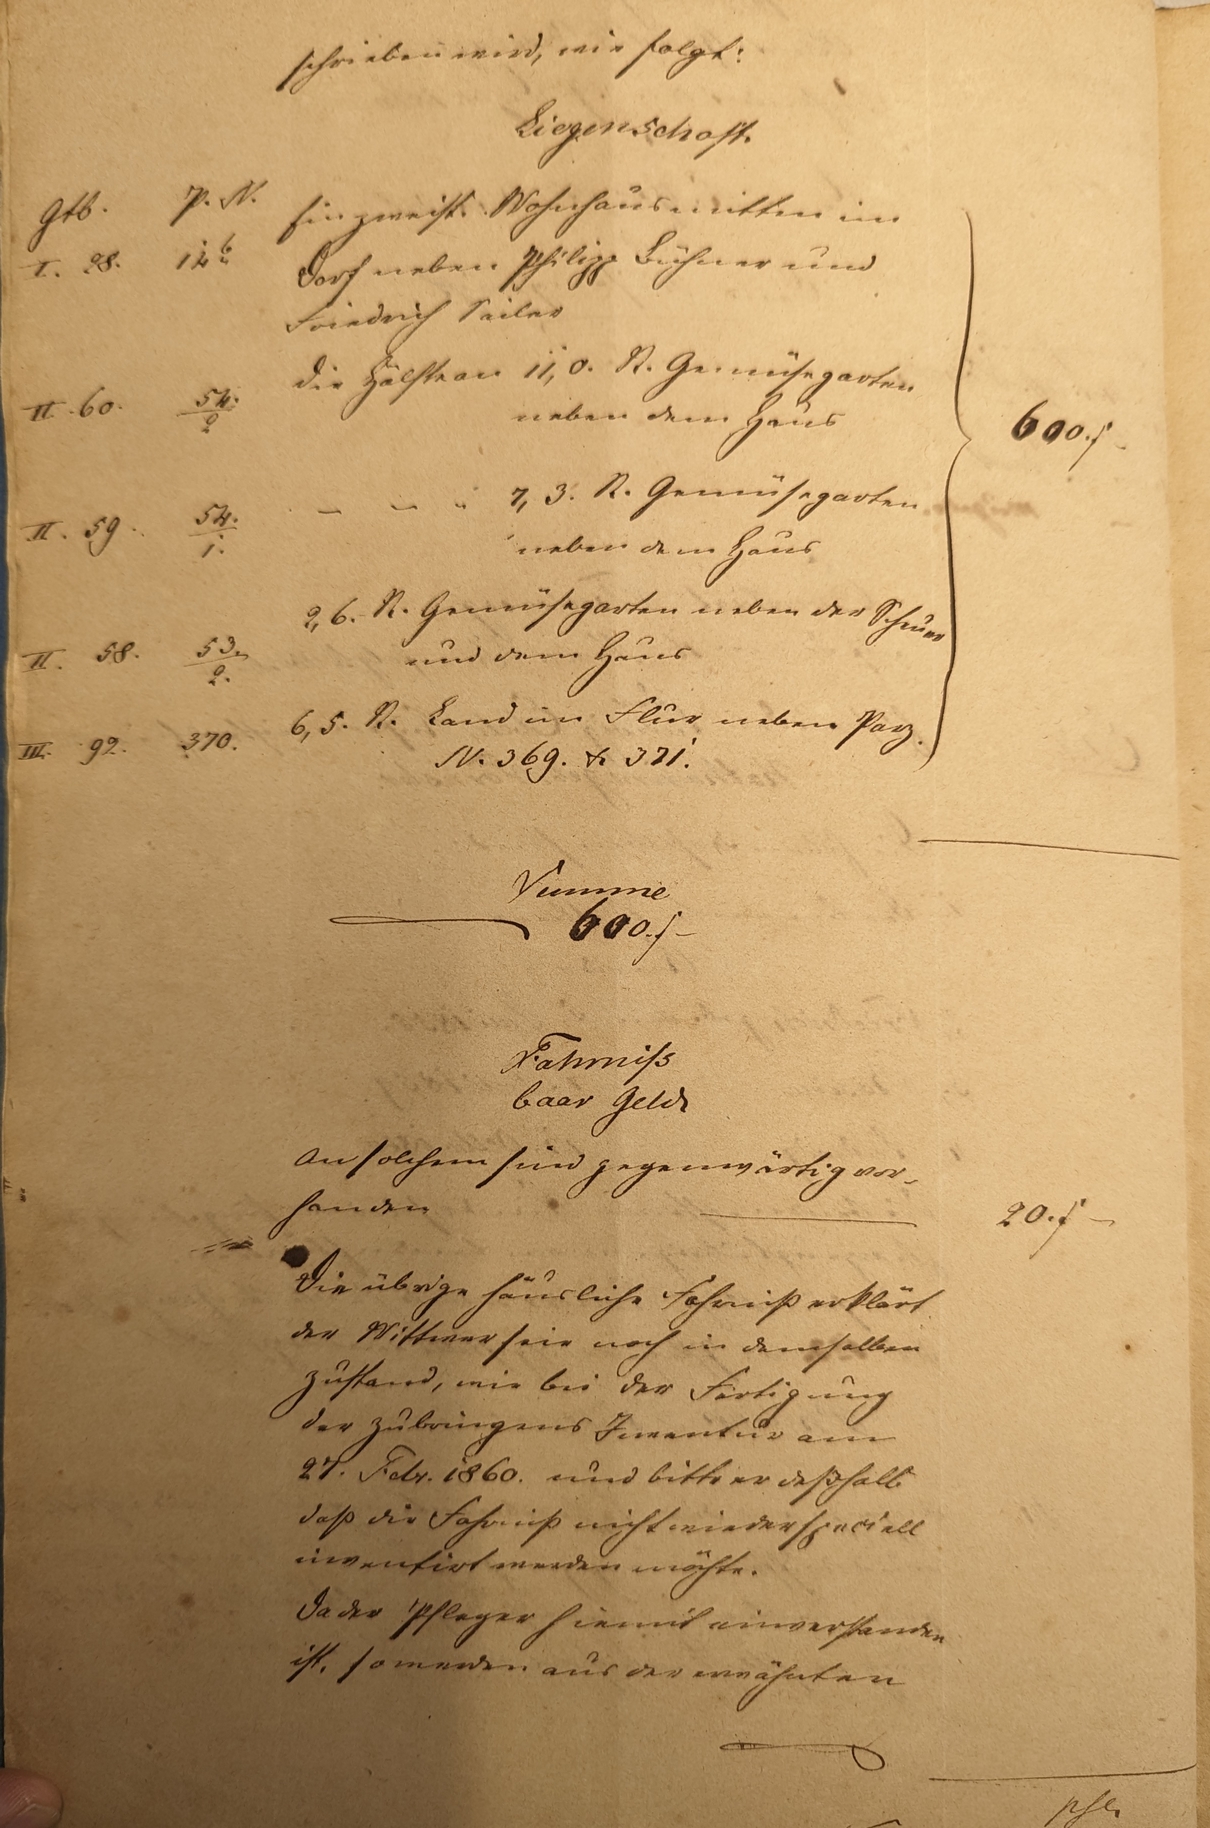 schrieben wird, wie folgt:
Liegenschaft.
Gtb. P. N. Ein zweist. Wohnhaus mitten im
I. 28. Dorf neben Philipp Bühner und
Friedrich Seiler
Die Hälfte an 11,0. R. Gemüsegarten
II. 60. 54./2 neben dem Haus 600.f -
" " " 7,3. R. Gemüsegarten
II. 59. 54./1. neben dem Haus
2,6. R. Gemüsegarten neben der Scheuer
II. 58. 53./2. und dem Haus
III. 92. 370. 6,5. R. Land im Flur neben Parz.
N. 369. & 371.
Summe
600.f -
Fahrniss
baar Geld
An solchem sind gegenwärtig vor-
handen 20.f -
Die übrige häusliche Fahrniß erklärt
der Wittwer seie noch in demselben
Zustand, wie bei der Fertigung
der Zubringens Inventur am
27. Febr. 1860. und bitte er deßhalb
daß die Fahrniß nicht wieder speciell
inventirt werden möchte.
Da der Pfleger hiemit einverstanden
ist, so werden aus der erwähnten